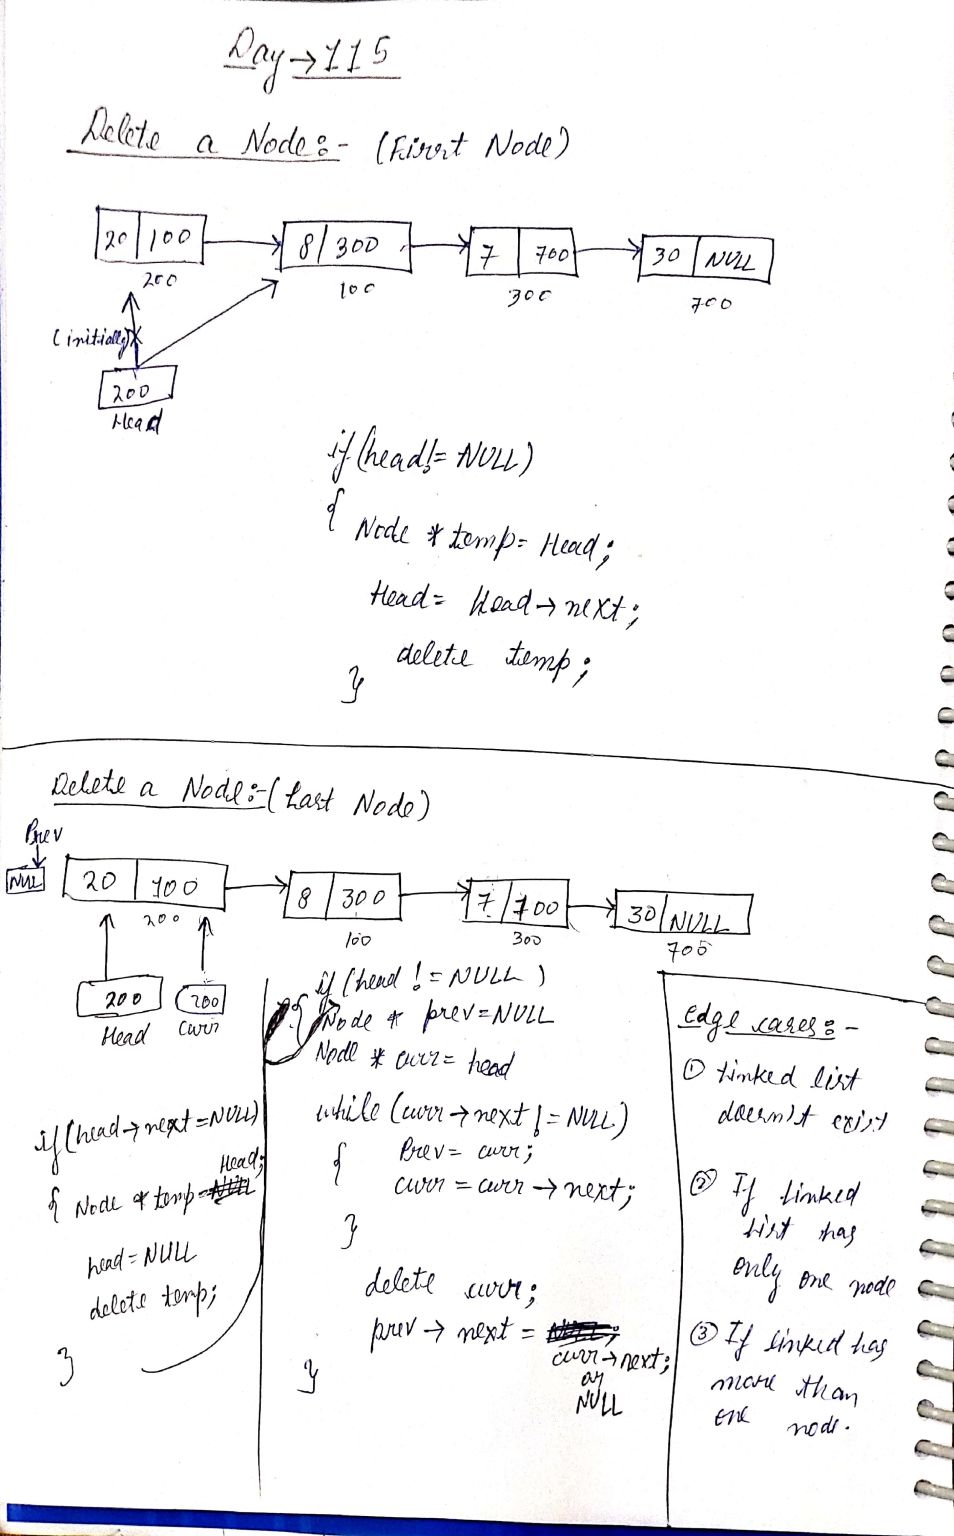 Day → 115
Delete a Node:- (First Node)
20 | 100
8 | 300
7 | 700
30 | NULL
200
100
300
700
(initially)
200
Head
if (head != NULL)
{
Node * temp = Head;
Head = Head → next;
delete temp;
}
Delete a Node:- (Last Node)
Prev
NULL
20 | 100
8 | 300
7 | 700
30 | NULL
200
100
300
700
200
Head
200
Curr
if (head → next = NULL)
{ Node * temp = Head;
head = NULL
delete temp;
}
if (head != NULL)
{
Node * prev = NULL
Node * curr = head
while (curr → next != NULL)
{ Prev = curr;
curr = curr → next;
}
delete curr;
prev → next = NULL;
curr → next;
or
NULL
}
edge cases:-
① Linked list
doesn't exist
② If linked
list has
only one node
③ If linked has
more than
one node.